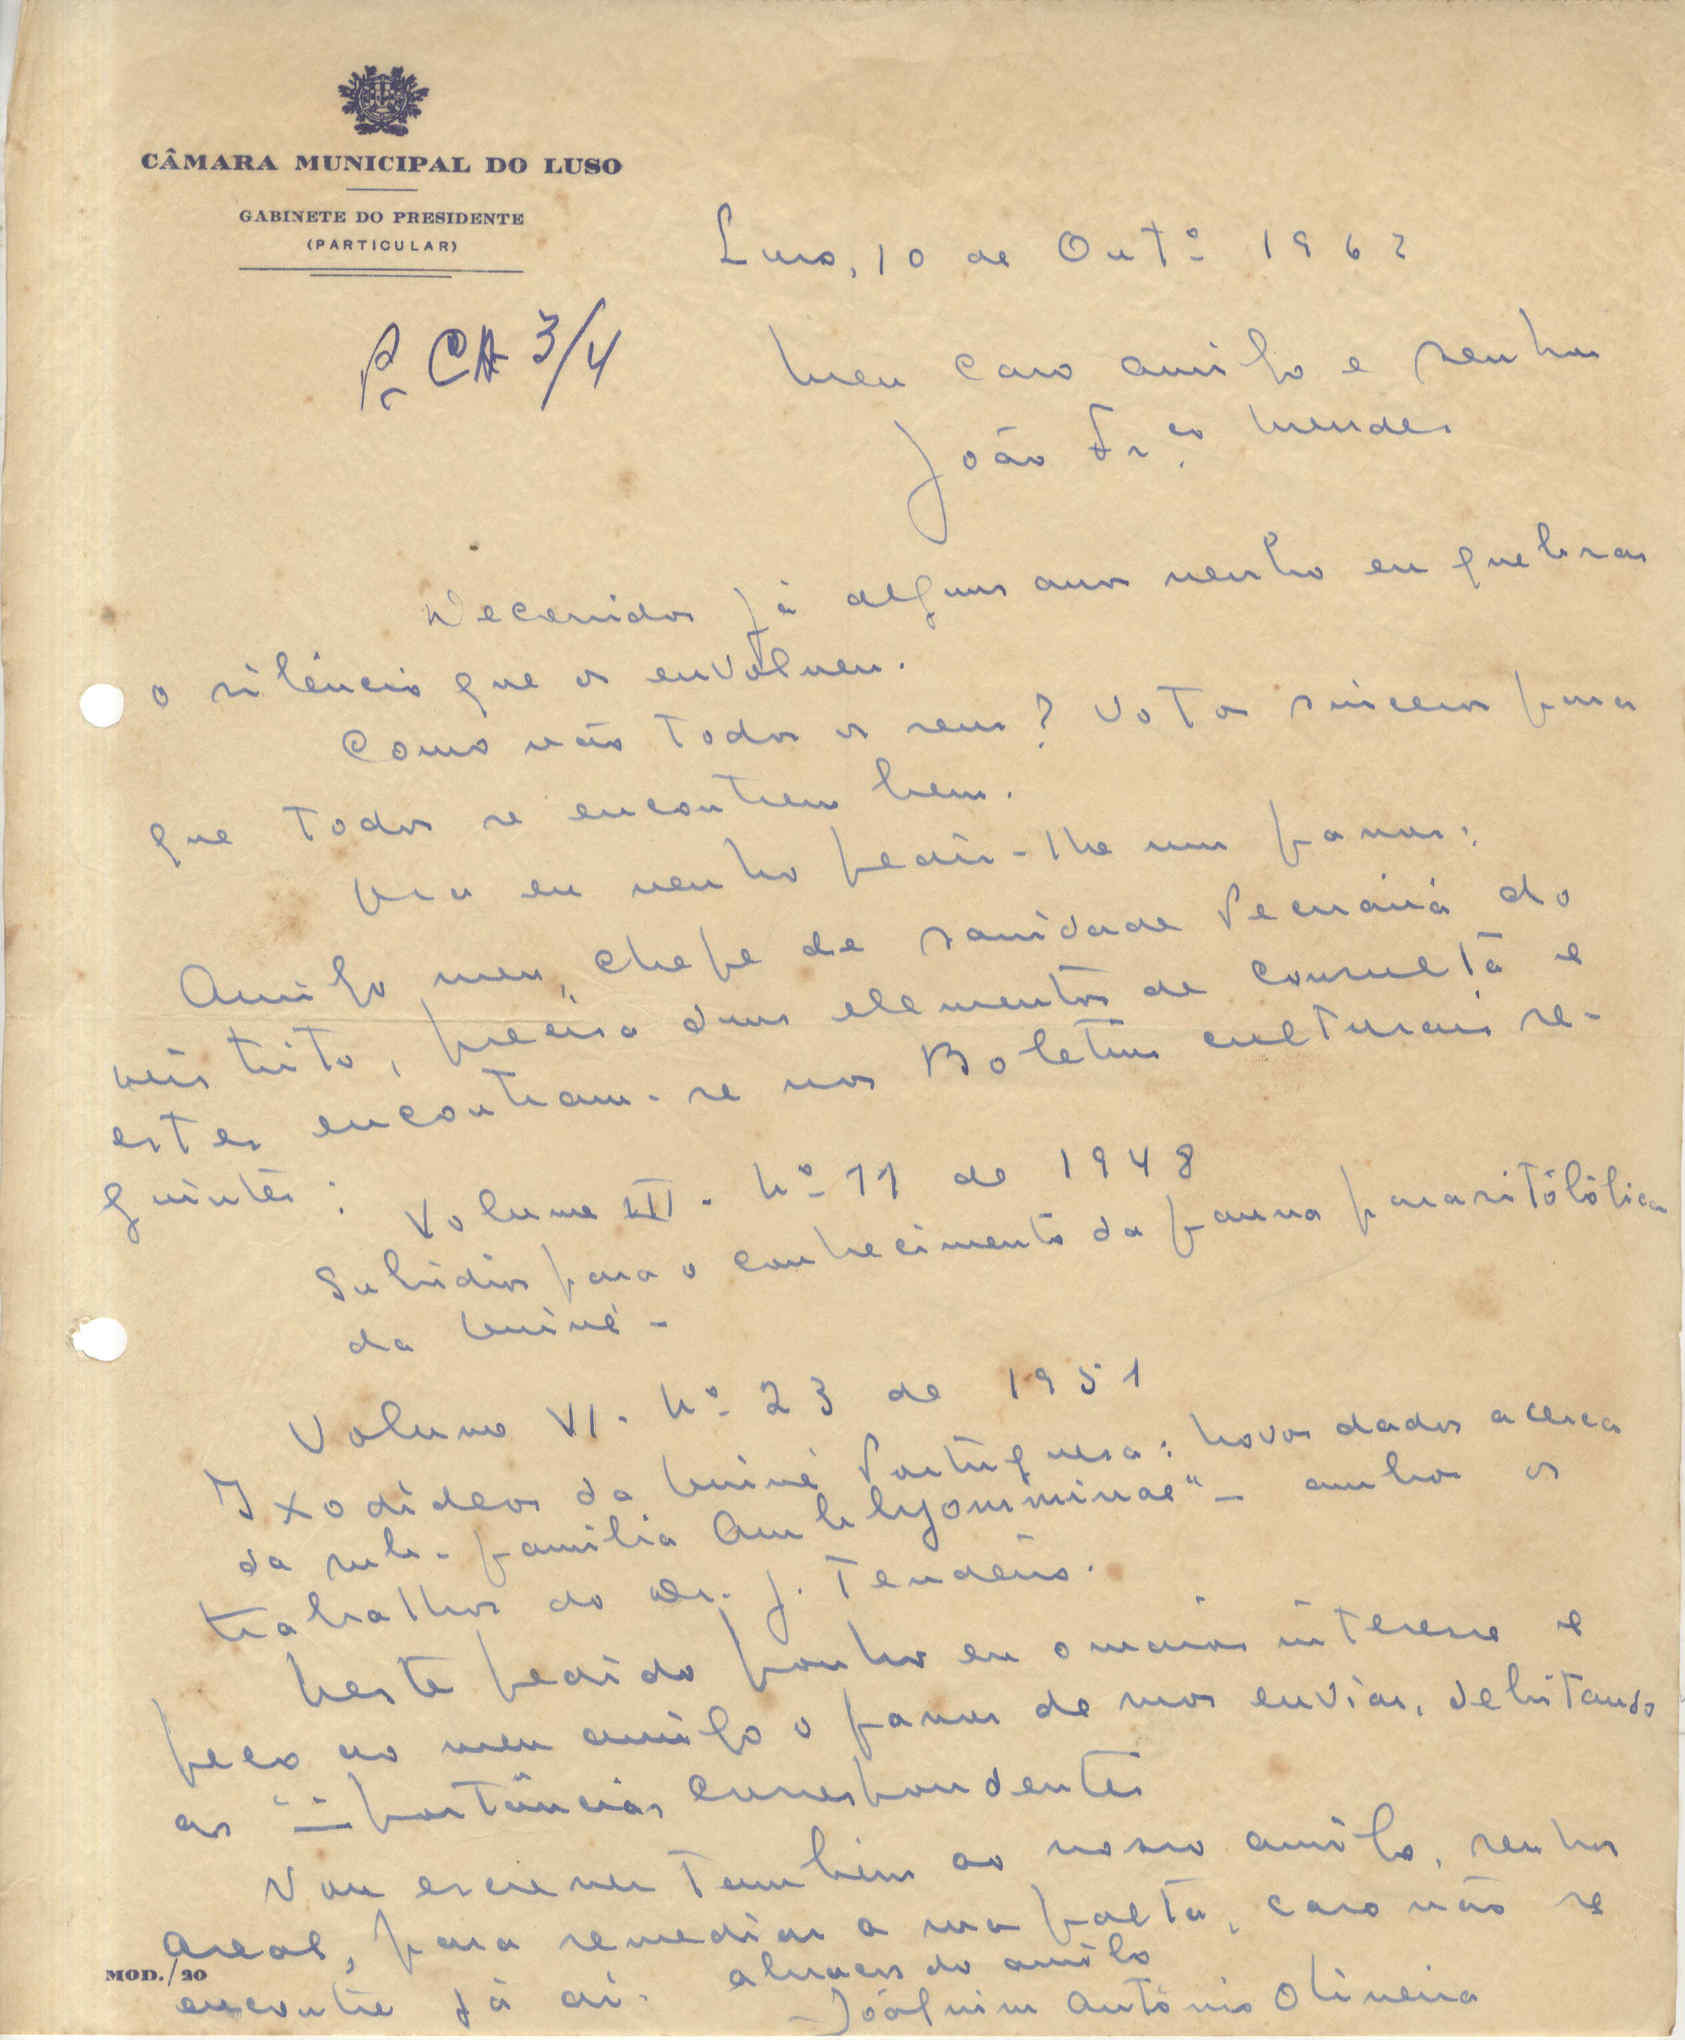 CÂMARA MUNICIPAL DO LUSO
GABINETE DO PRESIDENTE
(PARTICULAR)
Luso, 10 de Outº 1962
CA 3/4
Meu caro amigo e senhor
João Fr.co Mendes
Decorridos já alguns anos venho eu quebrar
o silêncio que os envolveu.
Como vão todos os seus? Votos sinceros para
que todos se encontrem bem.
Ora eu venho pedir-lhe um favor:
Amigo meu, chefe de sanidade Pecuária do
distrito, precisa duns elementos de consulta e
estes encontram-se nos Boletins culturais se-
guintes:
Volume III. Nº 11 de 1948
Subsídios para o conhecimento da fauna parasitológica
da Guiné -
Volume VI. Nº 23 de 1951
Ixodídeos da Guiné Portuguesa: Novos dados acerca
da sub-família Amblyomminae" - ambos os
trabalhos do Dr. J. Tendeiro.
Neste pedido ponho eu o maior interesse e
peço ao meu amigo o favor de mos enviar, debitando
as importâncias correspondentes
Vou escrever também ao nosso amigo, senhor
Areal, para remediar a sua falta, caso não se
encontre já aí.
abraços do amigo
Joaquim António Oliveira
MOD./20